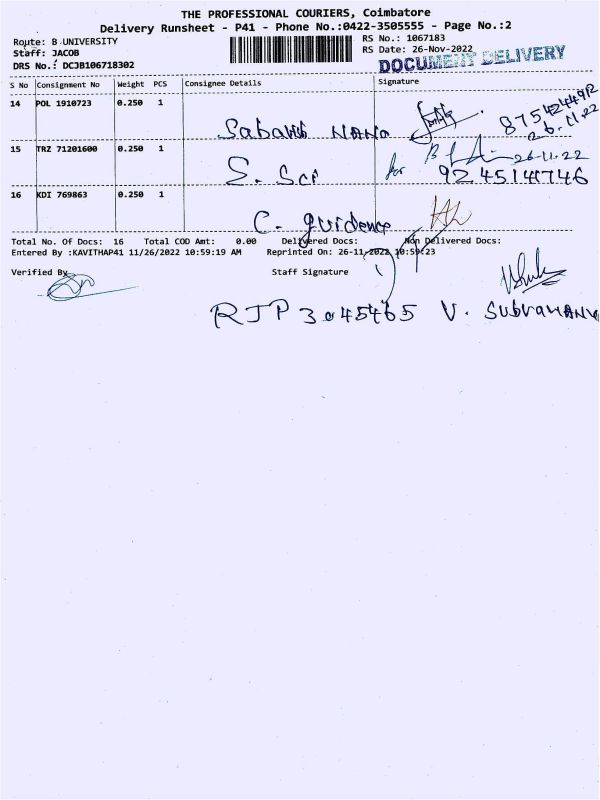 THE PROFESSIONAL COURIERS, Coimbatore
Delivery Runsheet - P41 - Phone No.:0422-3505555 - Page No.:2
Route: B UNIVERSITY
RS No.: 1067183
Staff: JACOB
RS Date: 26-Nov-2022
DRS No.: DCJB106718302
DOCUMENT DELIVERY
S No Consignment No Weight PCS Consignee Details Signature
14 POL 1910723 0.250 1
NANO
26.11.22
15 TRZ 71201600 0.250 1
26-11-22
S. Sci for 9245141746
16 KDI 769863 0.250 1
C. guidence
Total No. Of Docs: 16 Total COD Amt: 0.00 Delivered Docs: Non Delivered Docs:
Entered By :KAVITHAP41 11/26/2022 10:59:19 AM Reprinted On: 26-11-2022 10:59:23
Verified By Staff Signature
RJP 3045465 V.